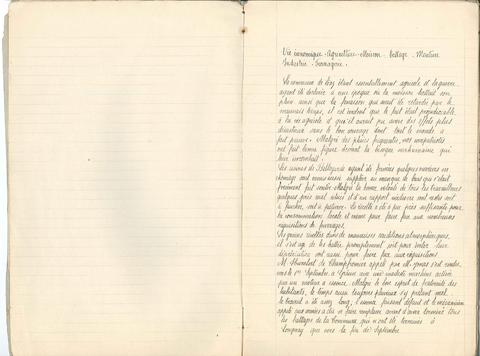 Vie économique. Agriculture. Moisson. Battage. Mouture
Industrie. Fromagerie.
La commune de étant essentiellement agricole et la guerre
ayant été déclarée à une époque où la moisson battait son
plein ainsi que la fenaison qui avait été retardée par le
mauvais temps, il est évident que le fait était préjudiciable
à la vie agricole et qu'il aurait pu avoir des effets plus
désastreux sans le bon courage dont tout le monde a
fait preuve. Malgré des pluies fréquentes, nos compatriotes
ont fait bonne figure devant la besogne
leur incombait.
Les usines de Bellegarde ayant de fermées quelques ouvriers en
chômage sont venus suppléer au manque de bras qui s'était
forcément fait sentir. Malgré la bonne volonté de tous les travailleurs
quelques prés mal situés et d'un rapport médiocre sont restés soit
à faucher, soit à pâturer. La récolte a été à peu près suffisante pour
la consommation locale et même pour faire face aux nombreuses
réquisitions de fourrages.
Les grains récoltés dans de mauvaises conditions atmosphériques,
il s'est agi de les battre promptement soit pour éviter leur
dépréciation soit aussi pour faire face aux réquisitions.
M. de Champfromier appelé par s'est rendu
vers le 1er Septembre à avec une machine actionnée
par un moteur à essence. Malgré le bon esprit de fraternité des
habitants, le temps aussi toujours pluvieux s'y prêtant mal,
le travail a été assez long; l'essence faisant défaut et le mécanicien
appelé aux armées a dû se faire remplacer avant d'avoir terminé tous
les battages de la Commune qui n'ont été terminés à
que vers la fin de Septembre.